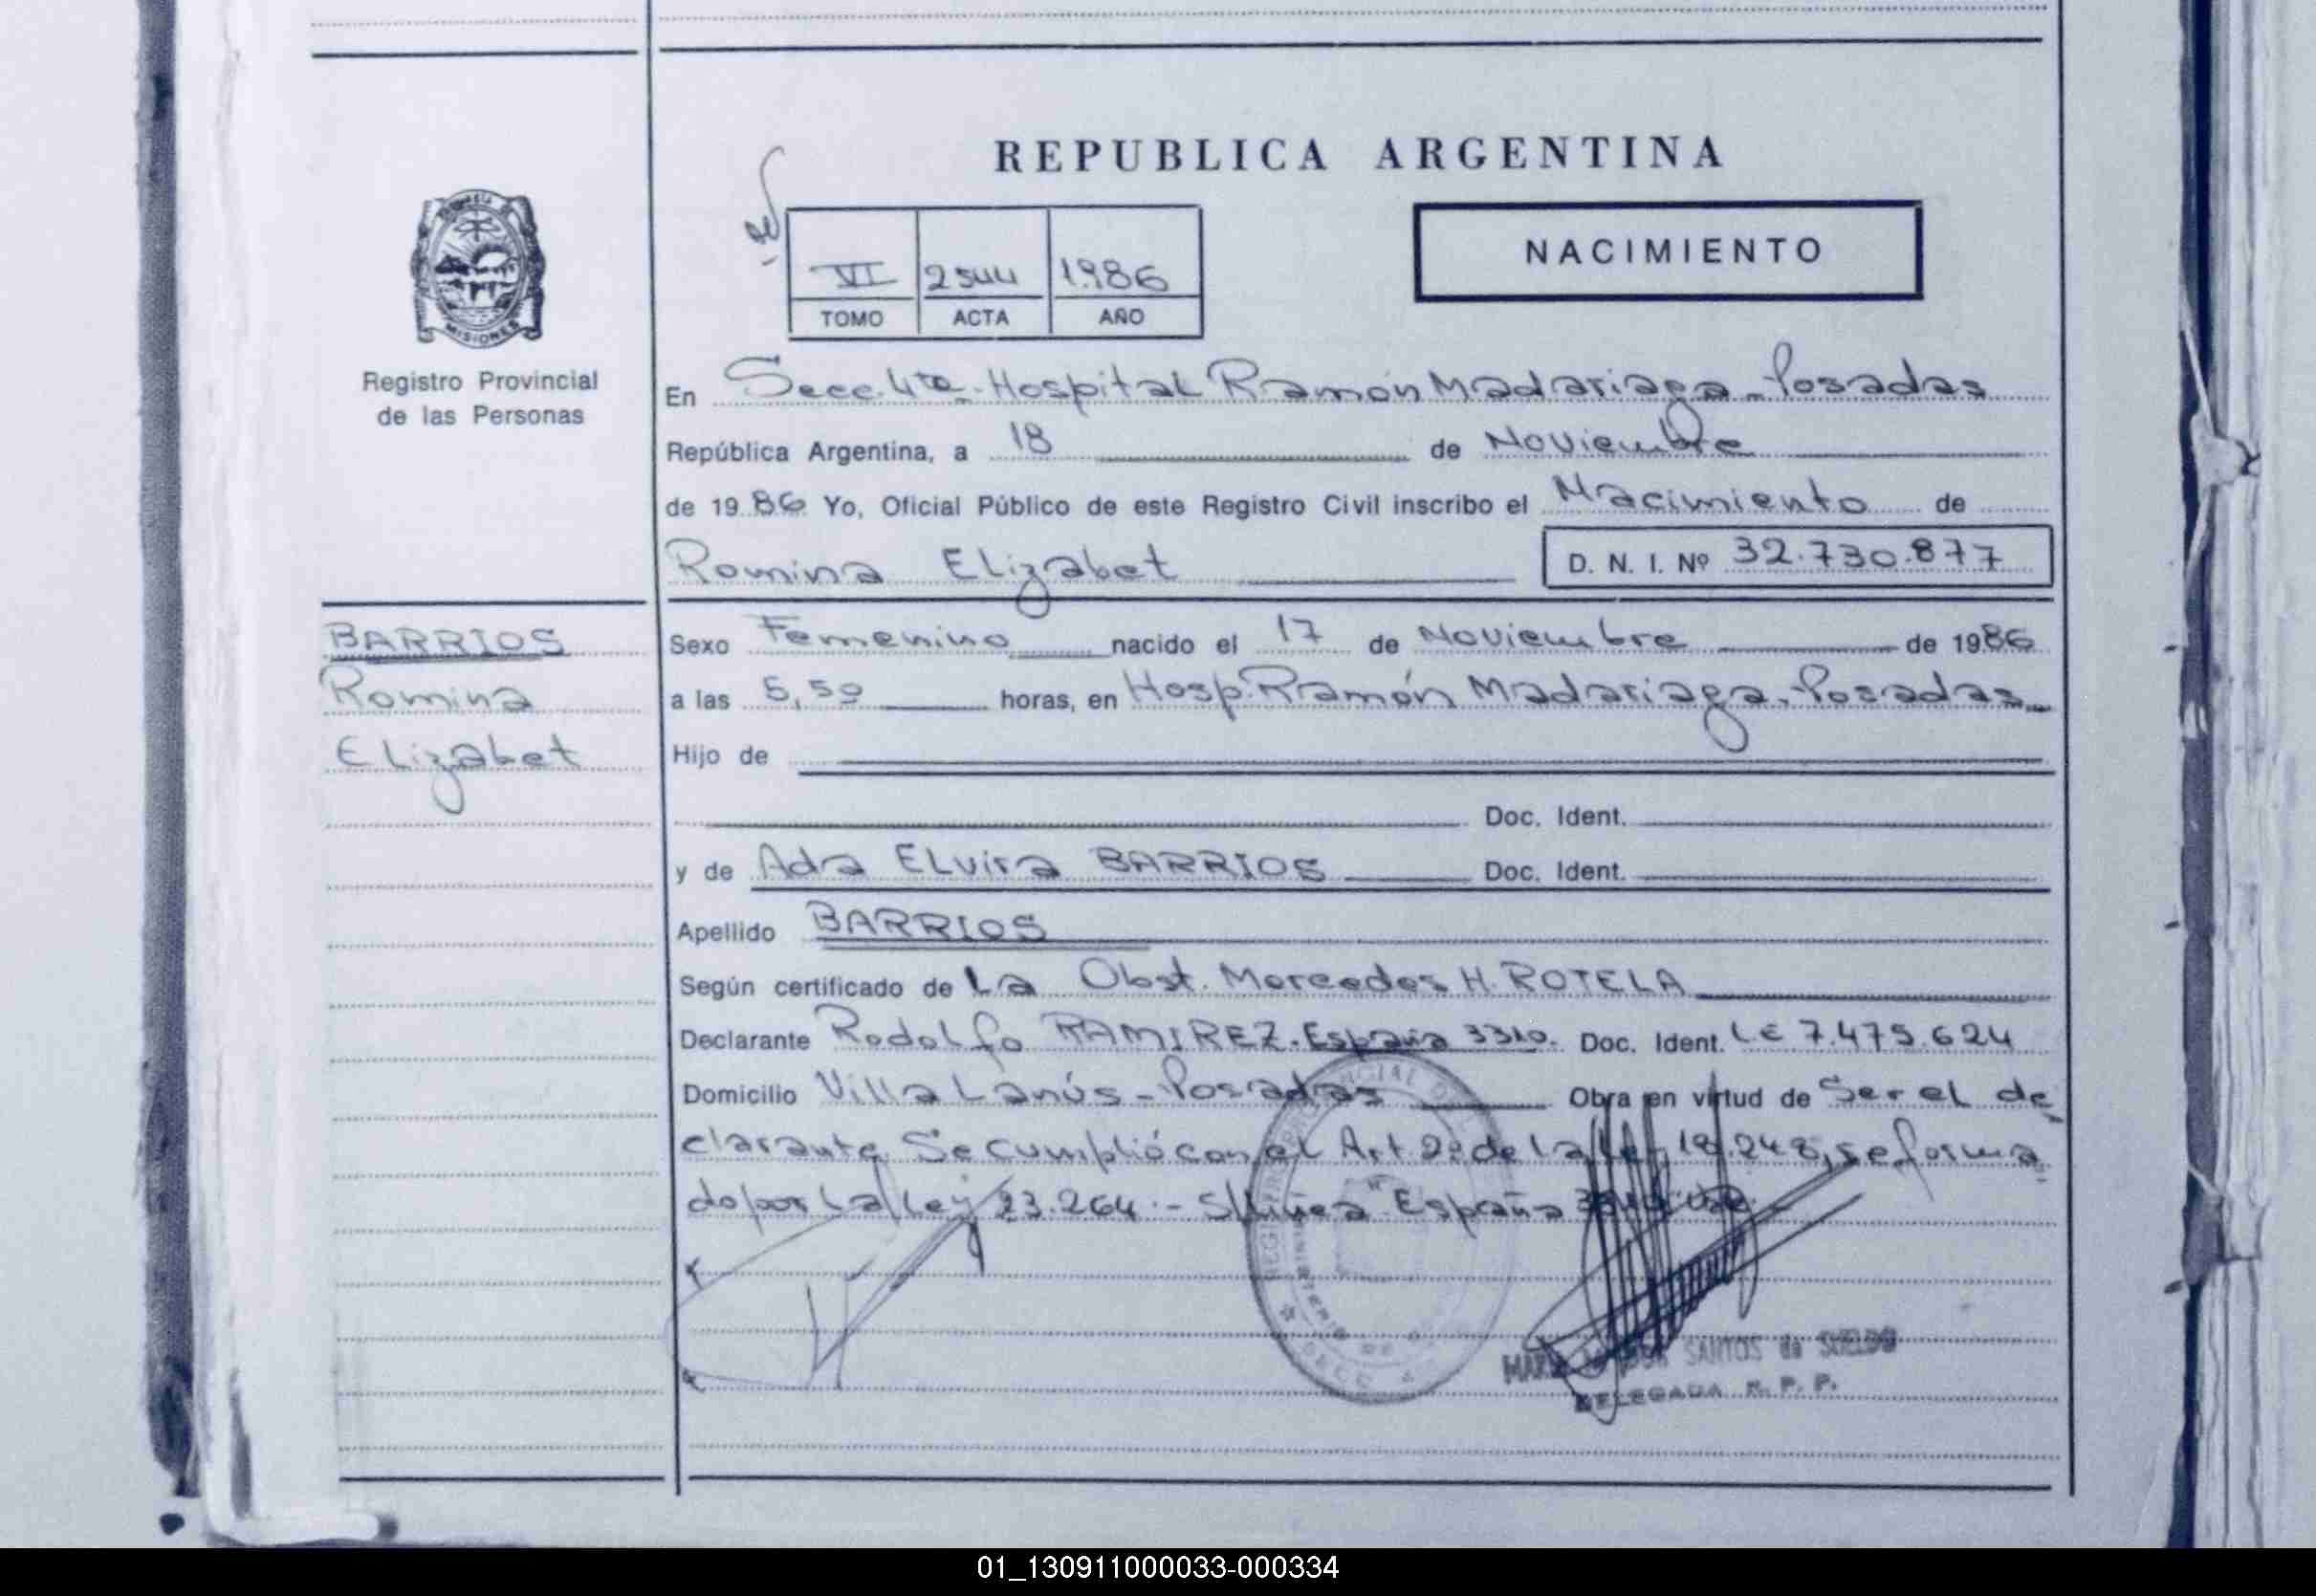 REPUBLICA ARGENTINA
NACIMIENTO
VI 2544 1986
TOMO ACTA AÑO
MISIONES
Registro Provincial
de las Personas
En Secc. 4ta. Hospital Ramón Madariaga - Posadas
República Argentina, a 18 de Noviembre
de 1986 Yo, Oficial Público de este Registro Civil inscribo el Nacimiento de
Romina Elizabet D. N. I. Nº 32.730.877
BARRIOS
Romina
Elizabet
Sexo Femenino nacido el 17 de Noviembre de 1986
a las 5,50 horas, en Hosp. Ramón Madariaga - Posadas
Hijo de
Doc. Ident.
y de Ada Elvira BARRIOS Doc. Ident.
Apellido BARRIOS
Según certificado de la Obst. Mercedes H. ROTELA
Declarante Rodolfo RAMIREZ. España 3310. Doc. Ident. LE 7.475.624
Domicilio Villa Lanús - Posadas Obra en virtud de Ser el de
clarante. Se cumplió con el Art. 2º de la Ley 18.248, reforma
do por la Ley 23.264 - S/línea "España
SANTOS de SUELDO
DELEGADA R. P. P.
01_130911000033-000334